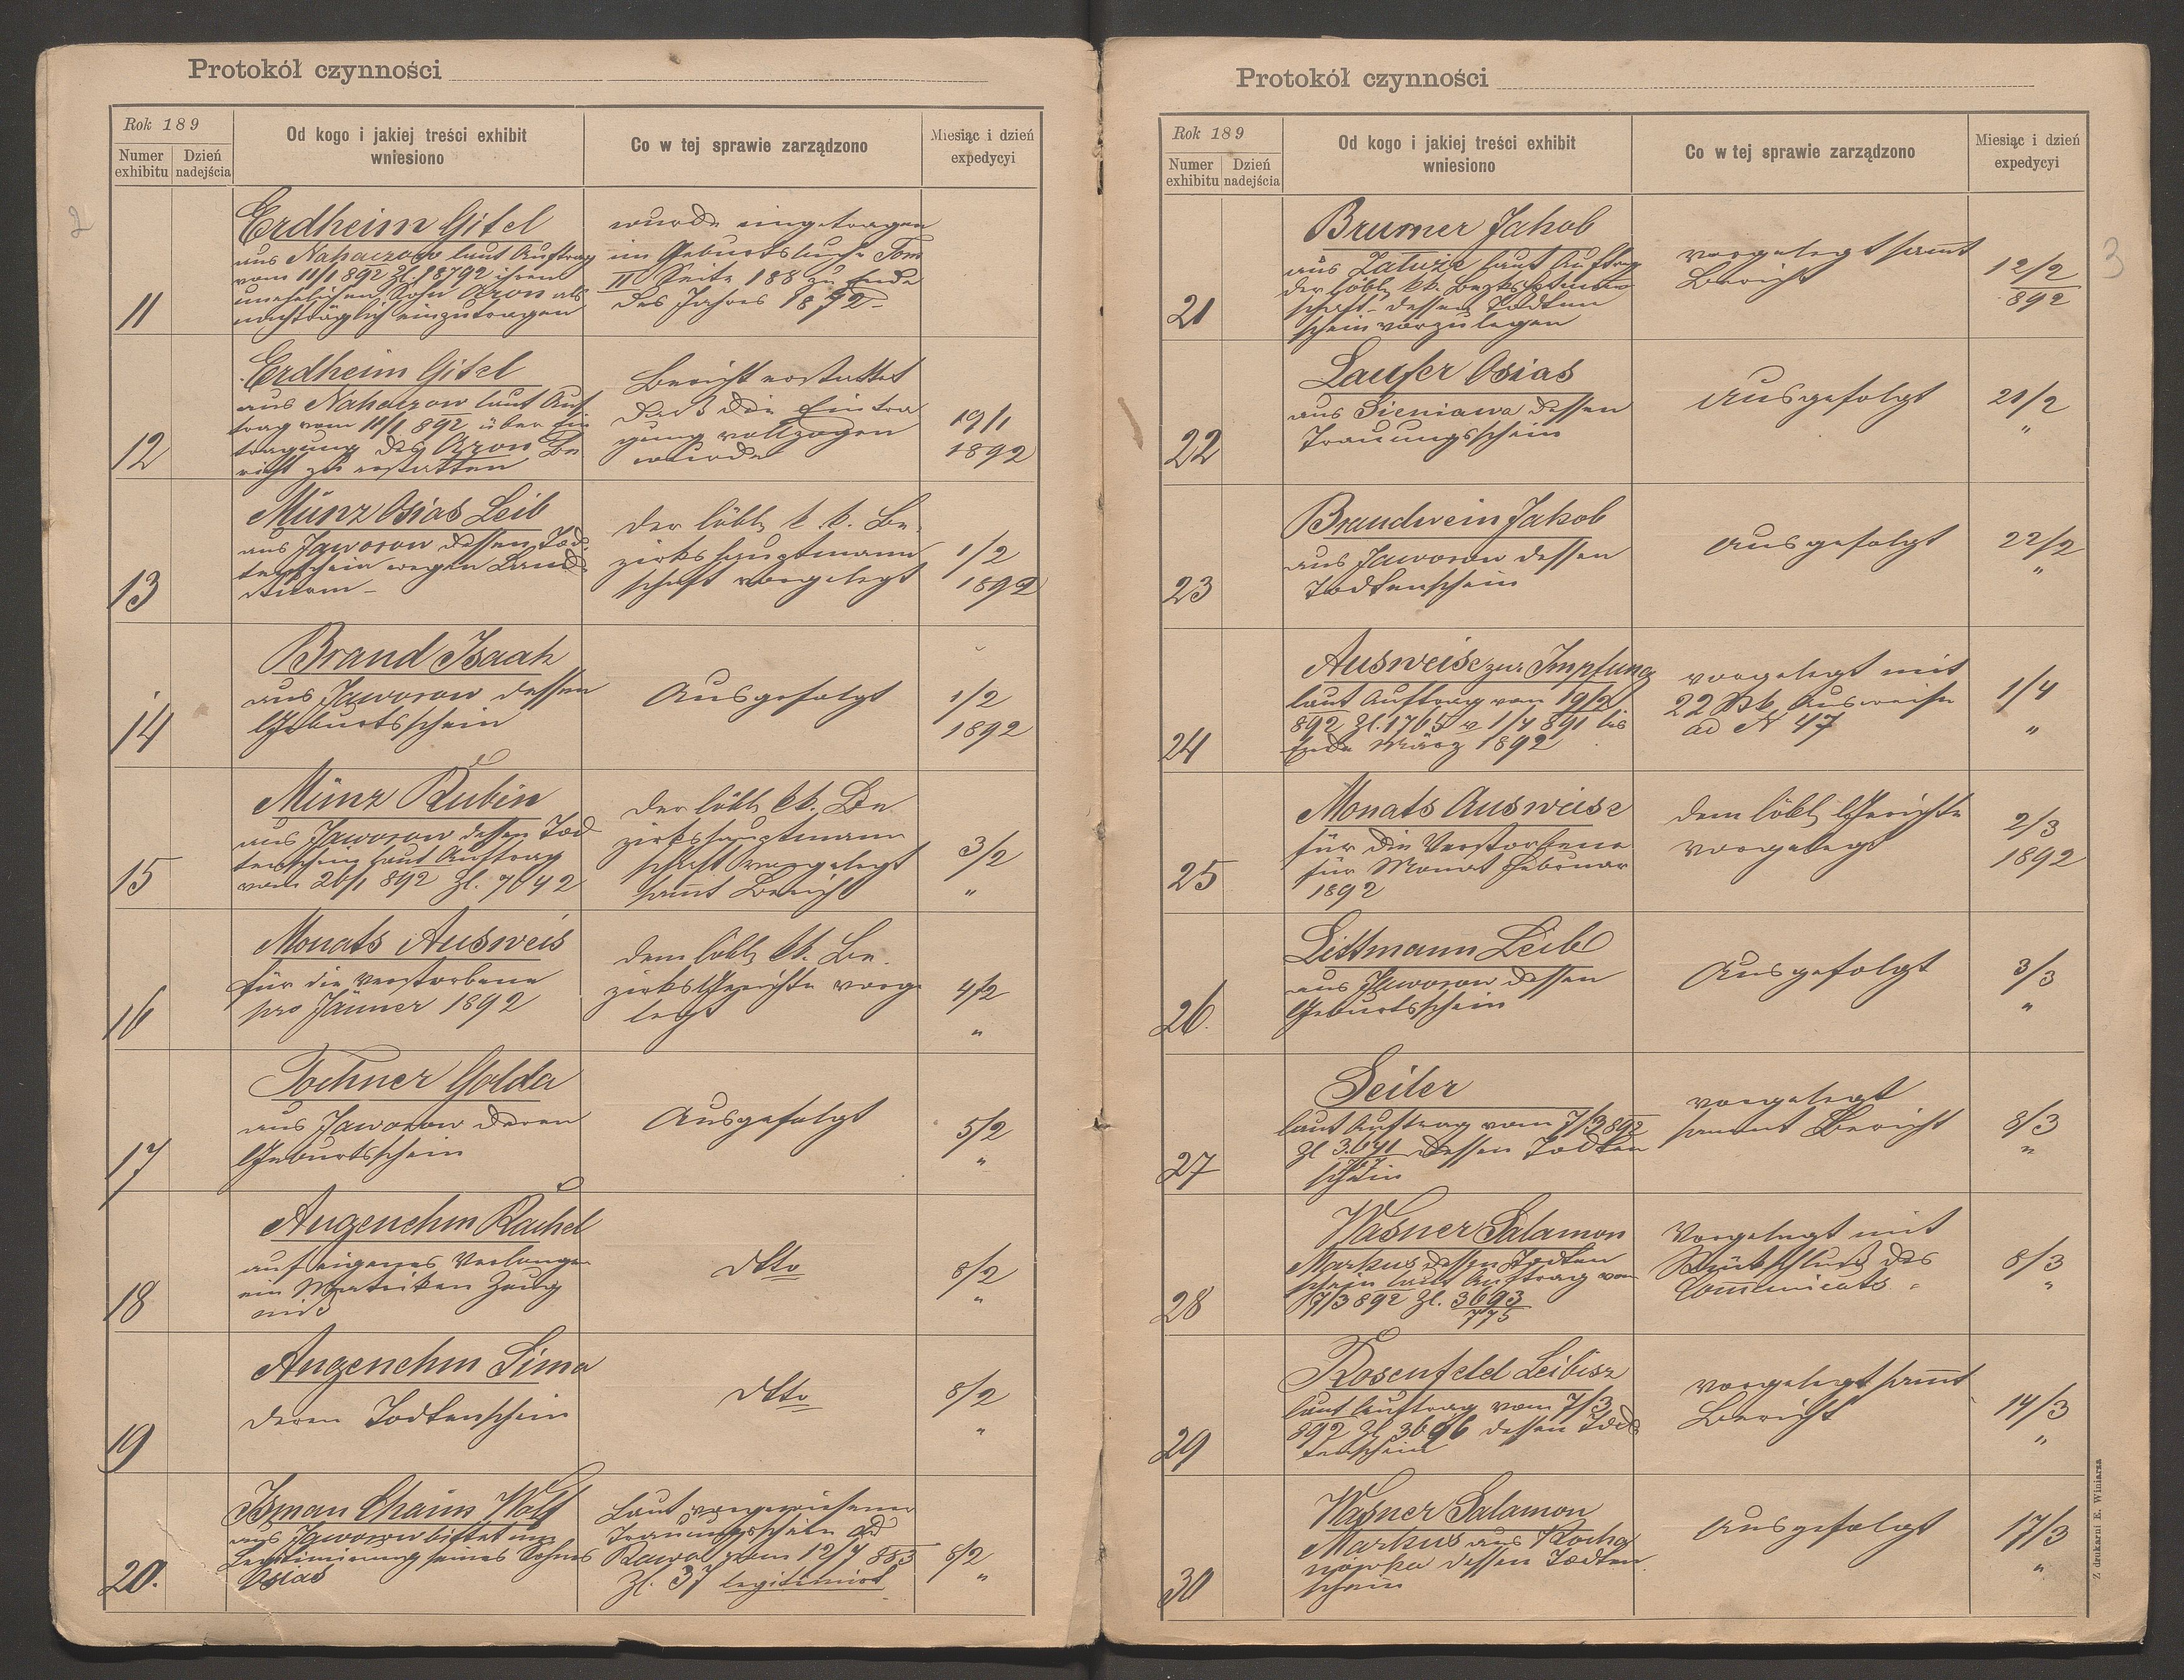 Protokół czynności
Rok 189
Numer exhibitu
Dzień nadejścia
Od kogo i jakiej treści exhibit wniesiono
Co w tej sprawie zarządzono
Miesiąc i dzień expedycyi
2
11
Erdheim Gitel
aus Nahaczow laut Auftrag
vom 11/1 892 Zl. 18792 ihren
unehelichen Sohn Aron als
nachträglich einzutragen
wurde eingetragen
im Geburtsbuche Tom
II Seite 188 zu Ende
des Jahres 1892
12
Erdheim Gitel
aus Nahaczow laut Auf
trag vom 11/1 892 über Ein
tragung des Aron Be
richt zu erstatten
Bericht erstattet
daß die Eintra
gung vollzogen
wurde
19/1
1892
13
Münz Osias Leib
aus Jaworow dessen Tod
tenschein wegen Land
sturm
der löbl. k. k. Be
zirkshauptmann
schaft vorgelegt
1/2
1892
14
Brand Isaak
aus Jaworow dessen
Geburtsschein
Ausgefolgt
1/2
1892
15
Münz Rubin
aus Jaworow dessen Tod
tenschein laut Auftrag
vom 26/1 892 Zl. 7042
der löbl. kk. Be
zirkshauptmann
schaft vorgelegt
sammt Bericht
3/2
"
16
Monats Ausweis
für die Verstorbene
pro Jänner 1892
dem löbl. kk. Be
zirksgerichte vorge
legt
4/2
"
17
Tochner Golda
aus Jaworow deren
Geburtsschein
Ausgefolgt
5/2
"
18
Angenehm Rachel
auf eigenes Verlangen
ein Matriken Zeug
niß
dtto
8/2
"
19
Angenehm Sima
deren Todtenschein
dtto
8/2
"
20.
Isman Chaim Wolf
aus Jaworow bittet um
Legitimierung seines Sohnes
Osias
Laut vorgewiesenen
Trauungsschein dd
Rawa vom 12/7 883
Zl. 37 legitimirt
8/2
"
Protokół czynności
Rok 189
Numer exhibitu
Dzień nadejścia
Od kogo i jakiej treści exhibit wniesiono
Co w tej sprawie zarządzono
Miesiąc i dzień expedycyi
3
21
Brumer Jakob
aus Zaluże laut Auftrag
der löbl. kk. Bezkshptmann
schaft dessen Todten
schein vorzulegen
vorgelegt samt
Bericht
12/2
892
22
Laufer Osias
aus Sieniawa dessen
Trauungsschein
Ausgefolgt
21/2
"
23
Brandwein Jakob
aus Jaworow dessen
Todtenschein
Ausgefolgt
22/2
"
24
Ausweise zur Impfung
laut Auftrag vom 19/2
892 Zl. 1765 v 1/4 891 bis
Ende März 1892
vorgelegt mit
22 Stk Ausweise
ad N 47
1/4
"
25
Monats Ausweise
für die Verstorbene
für Monat Februar
1892
dem löbl. Gerichte
vorgelegt
2/3
1892
26.
Littmann Leib
aus Jaworow dessen
Geburtsschein
Ausgefolgt
3/3
"
27
Seiler
laut Auftrag vom 7/3 892
Zl 3.041 dessen Todten
schein
vorgelegt
sammt Bericht
8/3
"
28
Wasner Salamon
Markus dessen Todten
schein laut Auftrag vom
7/3 892 Zl. 3693
775
Vorgelegt mit
Rückschluß des
Communicats
8/3
"
29
Rosenfeld Leibisz
laut Auftrag vom 7/3
892 Zl 3696 dessen Tod
tenschein
vorgelegt samt
Bericht
14/3
"
30
Wasner Salamon
Markus aus
dessen Todten
schein
Ausgefolgt
17/3
"
Z drukarni E. Winiarza